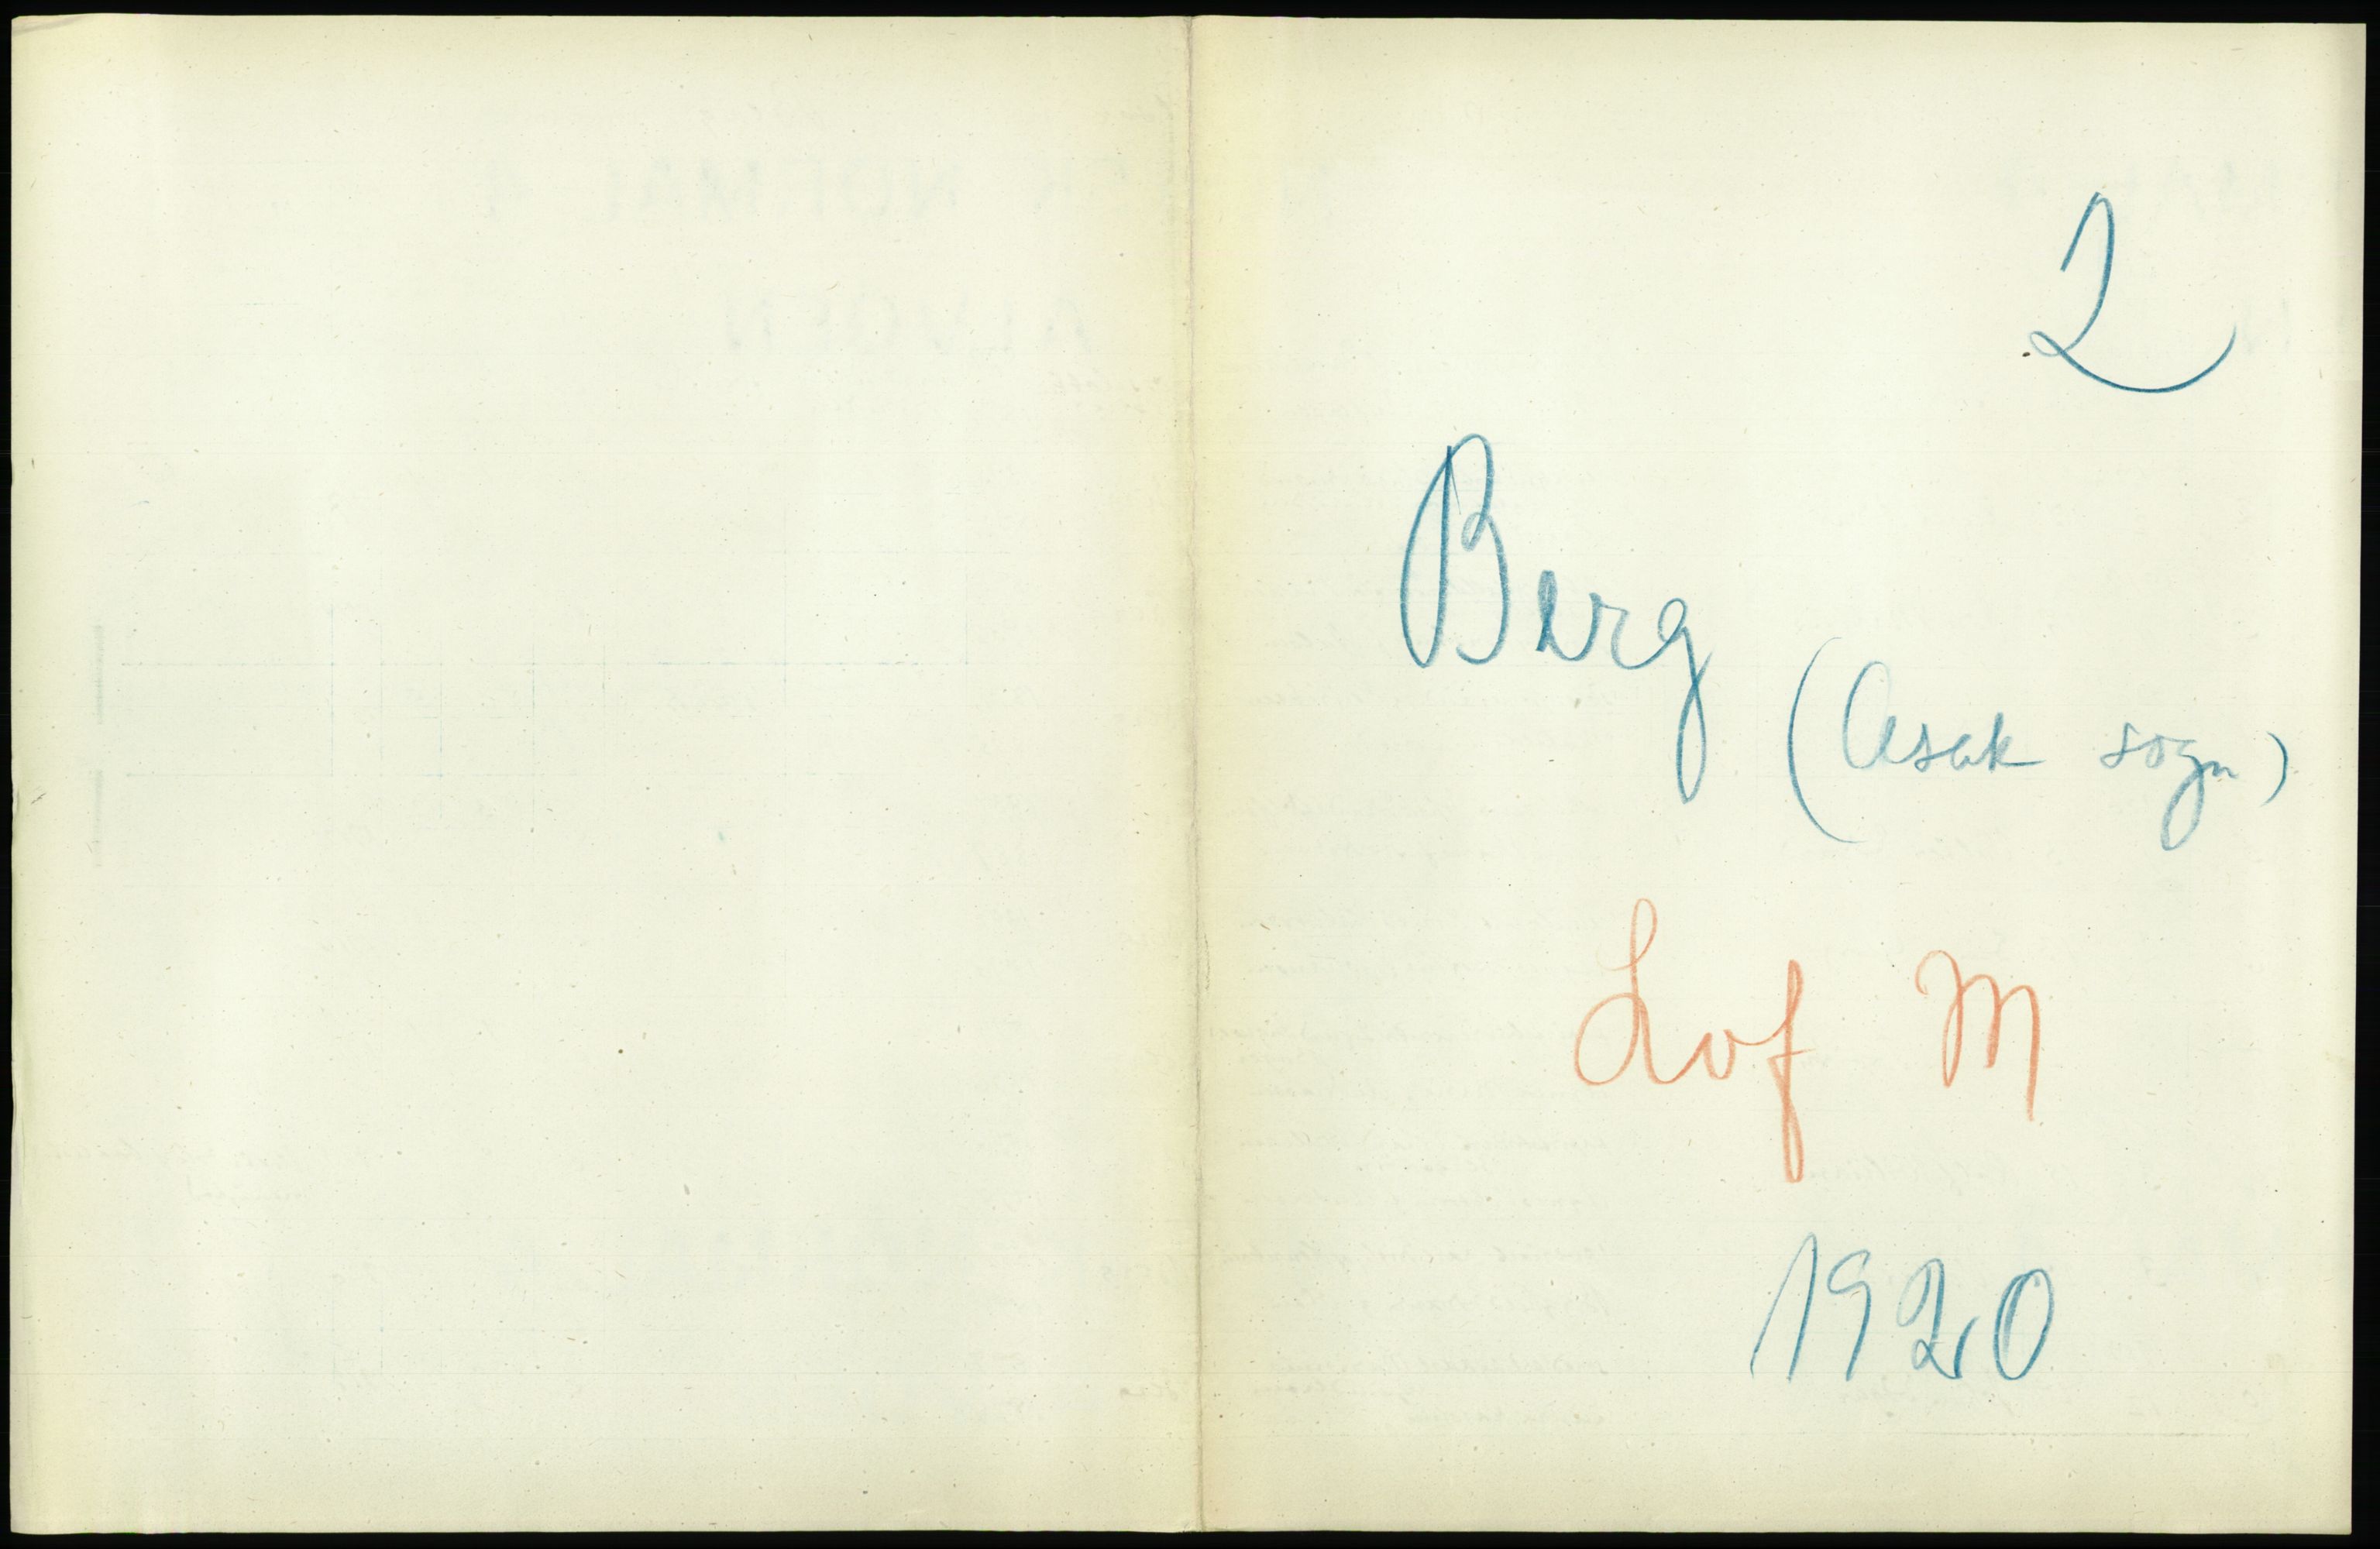 2
Berg
(Asak sogn)
Lof M
1920